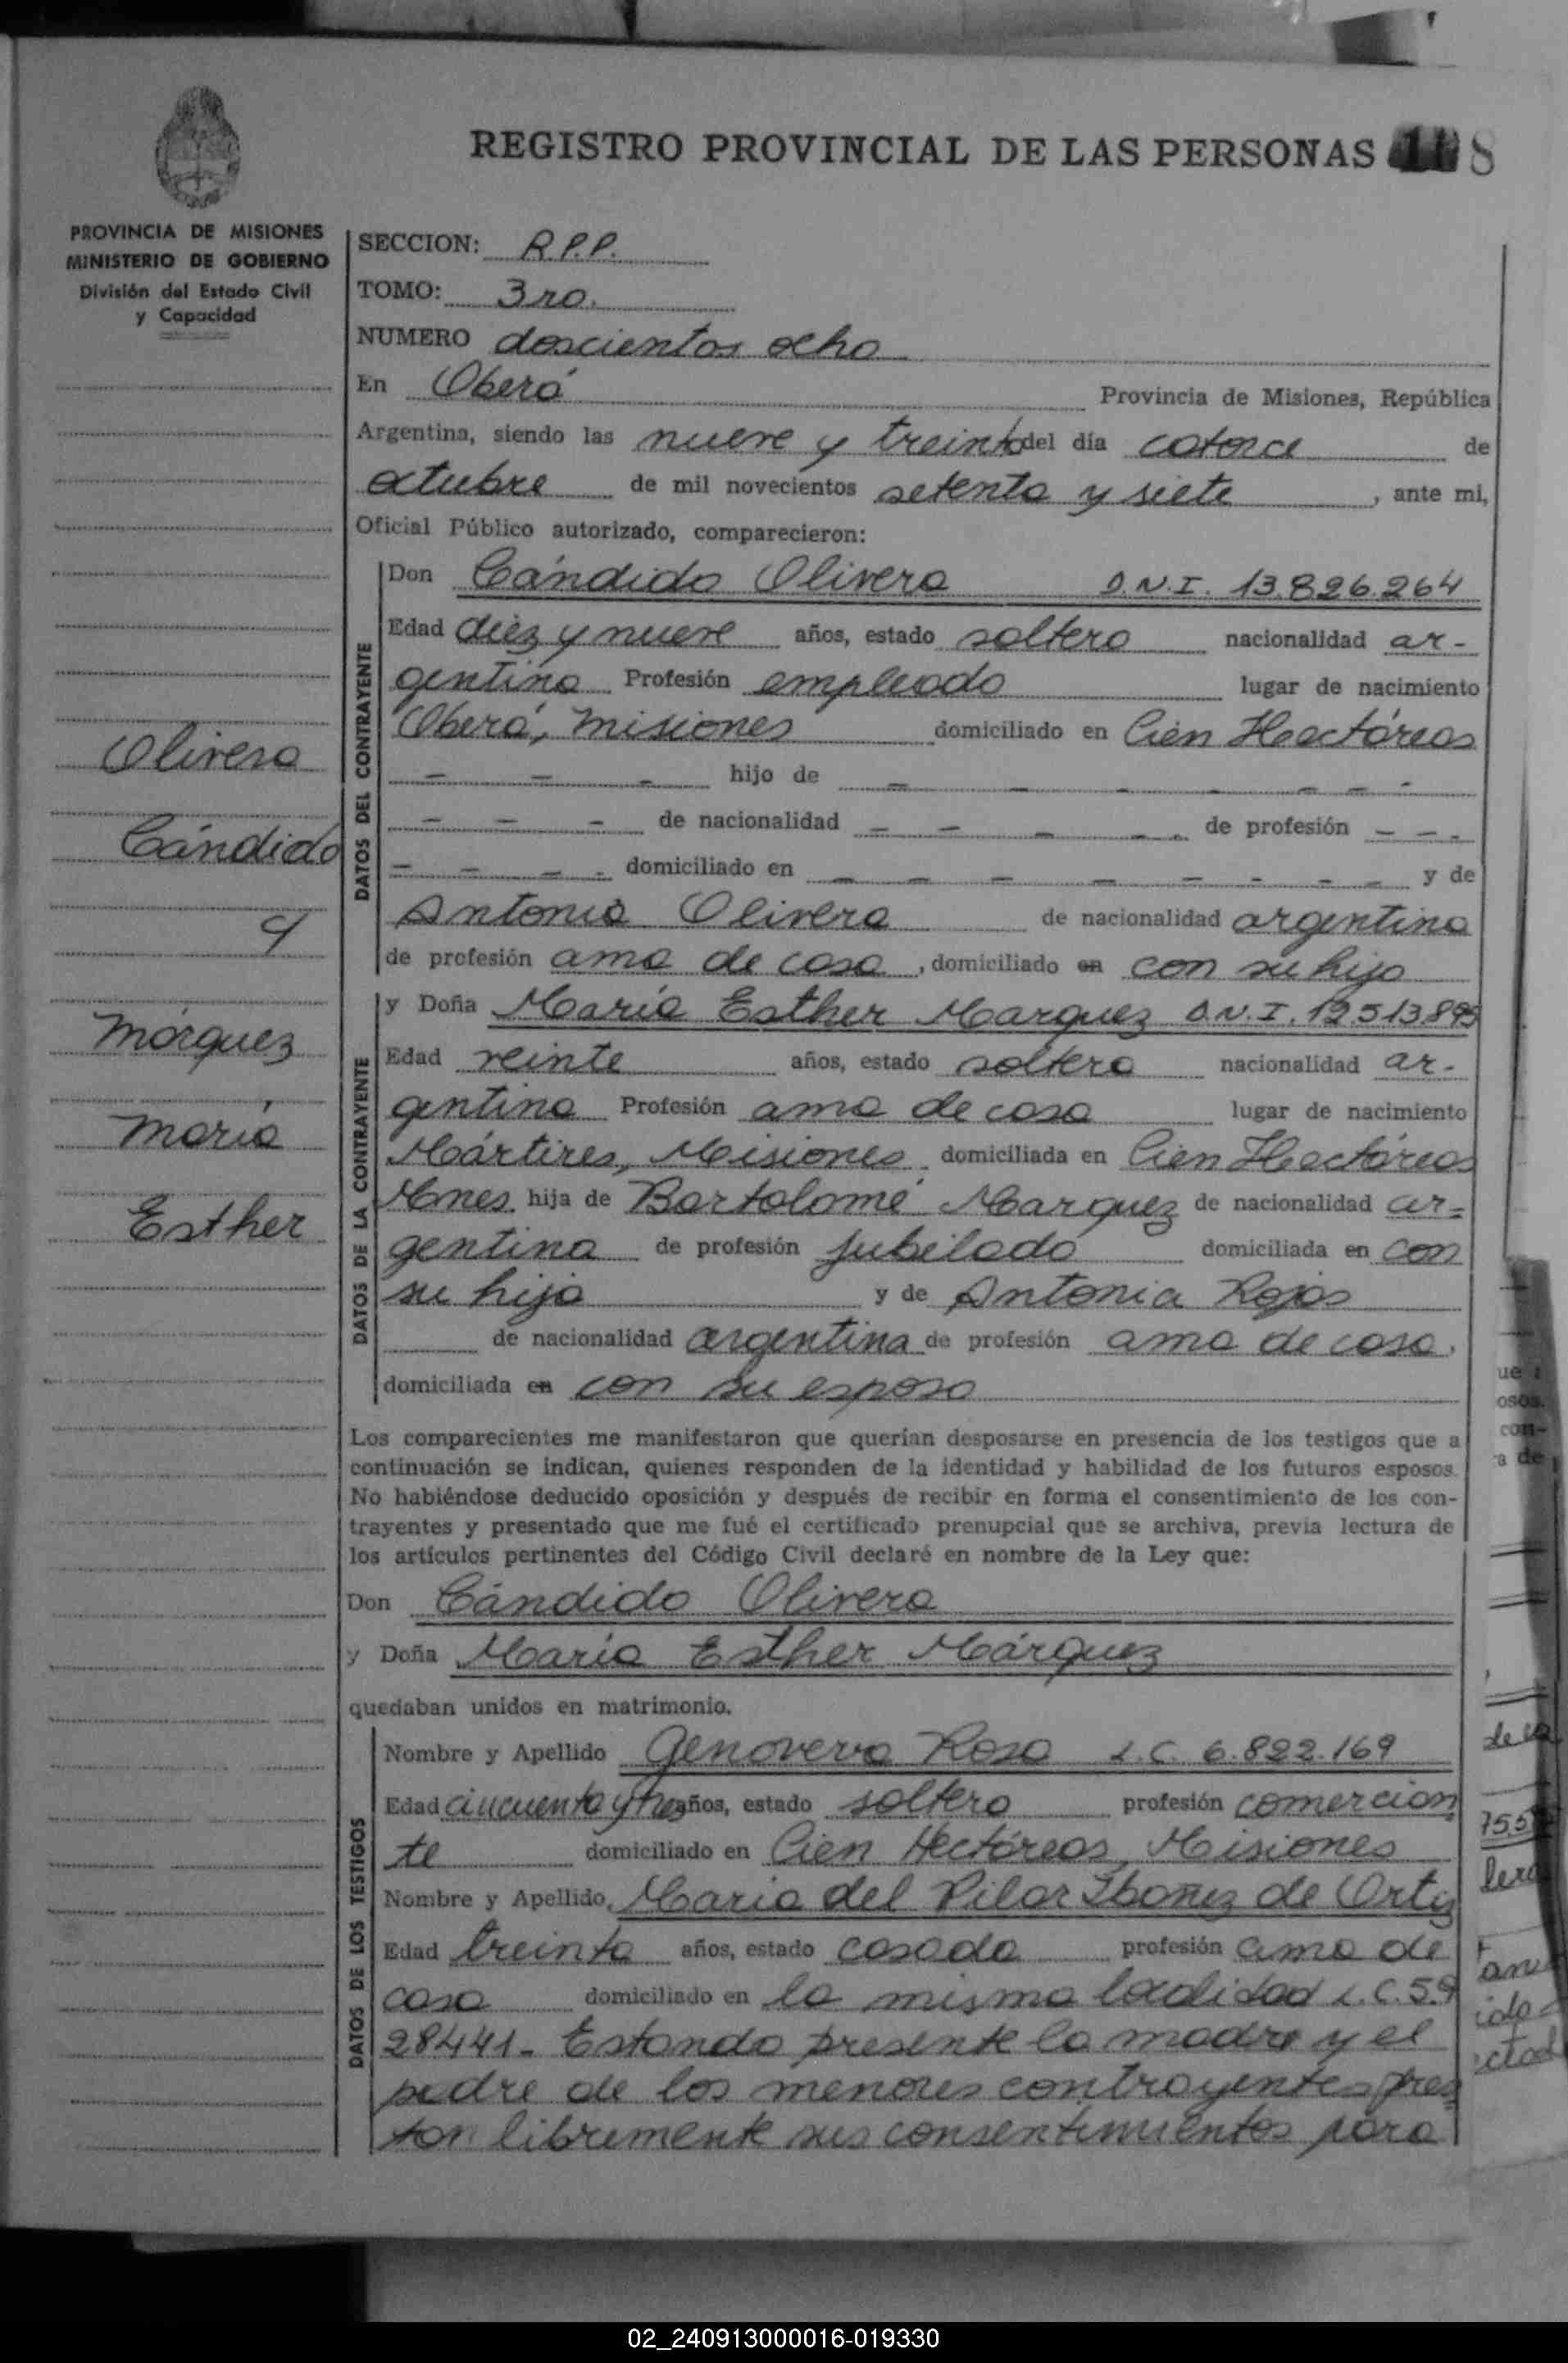 REGISTRO PROVINCIAL DE LAS PERSONAS
PROVINCIA DE MISIONES
MINISTERIO DE GOBIERNO
División del Estado Civil
y Capacidad
SECCION: R.P.P.
TOMO: 3ro.
NUMERO doscientos ocho
En Oberá Provincia de Misiones, República
Argentina, siendo las nueve y treinta del día catorce de
octubre de mil novecientos setenta y siete, ante mi,
Oficial Público autorizado, comparecieron:
DATOS DEL CONTRAYENTE
Don Cándido Olivera D.N.I. 13.826.264
Edad diez y nueve años, estado soltero nacionalidad ar-
gentina Profesión empleado lugar de nacimiento
Oberá, Misiones domiciliado en Cien Hectáreas
- - - hijo de - - - - - - -
- - - de nacionalidad - - - - - de profesión - - -
- - - - domiciliado en - - - - - - - - y de
Antonia Olivera de nacionalidad argentina
de profesión ama de casa, domiciliado en con su hijo
Olivera
Cándido
c/
Márquez
María
Esther
DATOS DE LA CONTRAYENTE
y Doña María Esther Marquez D.N.I.
Edad veinte años, estado soltera nacionalidad ar-
gentina Profesión ama de casa lugar de nacimiento
Mártires, Misiones domiciliada en Cien Hectáreas
Mnes. hija de Bartolomé Marquez de nacionalidad ar-
gentina de profesión jubilado domiciliada en con
su hija y de Antonia Rojas
de nacionalidad argentina de profesión ama de casa.
domiciliada en con su esposo
Los comparecientes me manifestaron que querían desposarse en presencia de los testigos que a
continuación se indican, quienes responden de la identidad y habilidad de los futuros esposos.
No habiéndose deducido oposición y después de recibir en forma el consentimiento de los con-
trayentes y presentado que me fué el certificado prenupcial que se archiva, previa lectura de
los artículos pertinentes del Código Civil declaré en nombre de la Ley que:
Don Cándido Olivera
y Doña María Esther Márquez
quedaban unidos en matrimonio.
DATOS DE LOS TESTIGOS
Nombre y Apellido Genoveva Rosa L.C. 6.822.169
Edad cincuenta y tres años, estado soltera profesión comercian
te domiciliado en Cien Hectáreas, Misiones
Nombre y Apellido María del Pilar Ibañez de Ortiz
Edad treinta años, estado casada profesión ama de
casa domiciliado en la misma localidad L.C. 5.9
28441. Estando presente la madre y el
padre de los menores contrayentes pres
tan libremente sus consentimientos para
02_240913000016-019330